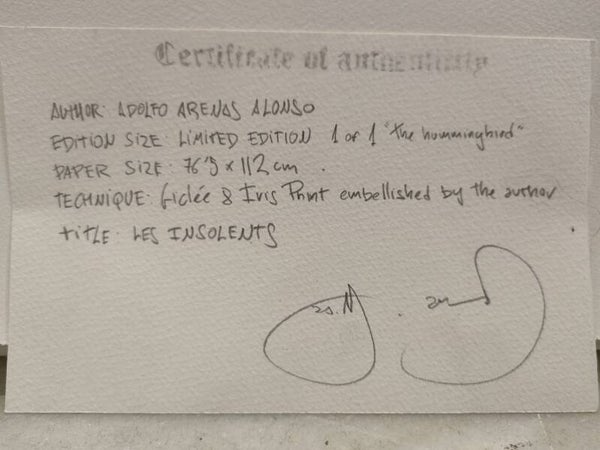 Certificate of authenticity
AUTHOR: ADOLFO ARENAS ALONSO
EDITION SIZE: LIMITED EDITION 1 of 1 "the hummingbird"
PAPER SIZE: 76'5 x 112 cm.
TECHNIQUE: Giclée & Iris Print embellished by the author
TITLE: LES INSOLENTS